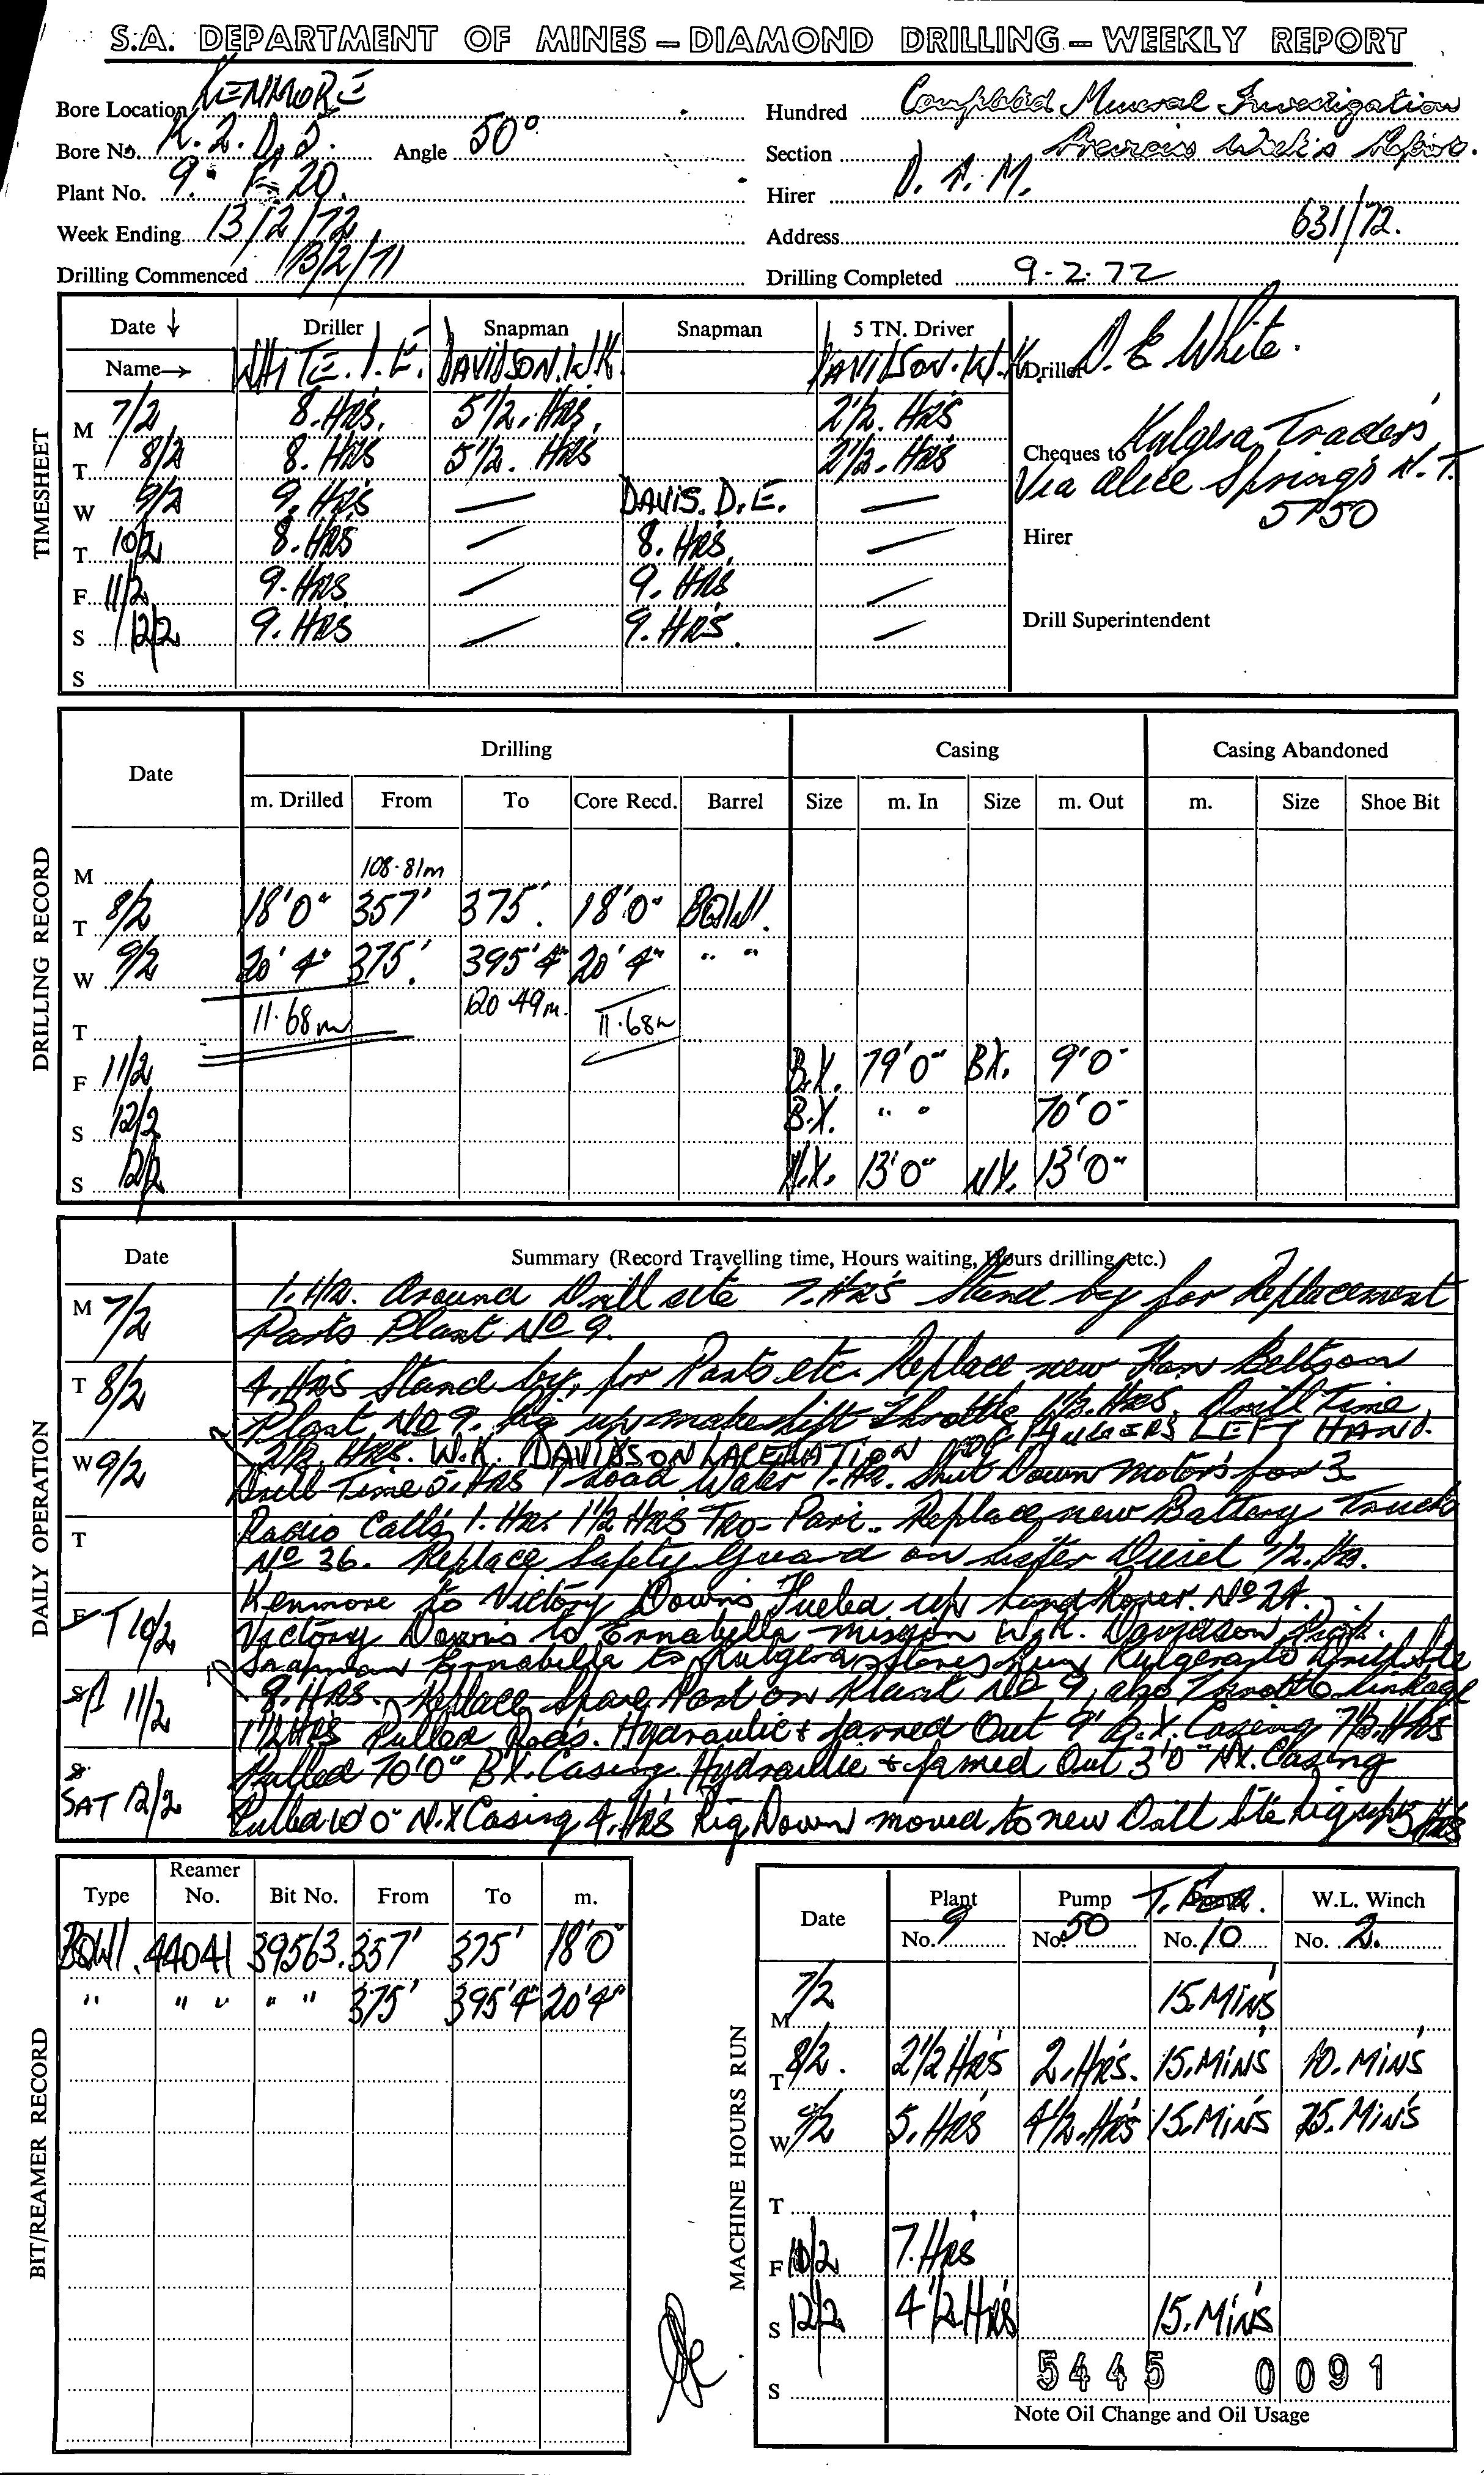 S.A. DEPARTMENT OF MINES — DIAMOND DRILLING — WEEKLY REPORT
Bore Location KENMORE
Hundred Completed Mineral Investigation
Bore No. K.2.D.5. Angle 50°
Section Previous Week's
Plant No. 9.
Hirer D.A.M.
Week Ending 13/2/72
Address 631/72.
Drilling Commenced 13/2/71
Drilling Completed 9.2.72
TIMESHEET
Date ↓ Driller Snapman Snapman 5 TN. Driver
Name→ WHITE. DAVIDSON.W.K. DAVIDSON.W.K. Driller D. E White.
M 7/2 8.HRS. 5½.HRS. 2½.HRS
T 8/2 8.HRS 5½.HRS 2½.HRS Cheques to Kulgera Traders
W 9/2 9.HRS — DAVIS.D.E. — Via Alice Springs N.T.
5750
T 10/2 8.HRS — 8.HRS. — Hirer
F 11/2 9.HRS — 9.HRS —
S 12/2 9.HRS — 9.HRS. — Drill Superintendent
S
DRILLING RECORD
Date Drilling Casing Casing Abandoned
m. Drilled From To Core Recd. Barrel Size m. In Size m. Out m. Size Shoe Bit
M 108.81m
T 8/2 18'0" 357' 375'. 18'0" BQWl.
W 9/2 20'4" 375'. 395'4" 20'4" " "
T 11.68m 120.49m. 11.68m
F 11/2 B.X. 79'0" BX. 9'0"
S 12/2 B.X. " " 70'0"
S 12/2 N.X. 13'0" NX. 13'0"
DAILY OPERATION
Date Summary (Record Travelling time, Hours waiting, Hours drilling, etc.)
M 7/2 1.Hr. Around Drill site 7.Hrs Stand by for Replacement
Parts Plant No 9.
T 8/2 4.Hrs Stand by, for Parts etc. Replace new Fan Belts on
Plant No 9. Rig up makeshift throttle 1½.Hrs. Drill Time
2½.HRS. W.K. DAVIDSON LACERATION LEFT HAND.
W 9/2 Drill Time 5.Hrs 1 Load Water 1.Hr. Shut Down motors for 3
Radio Calls 1.Hr. 1½ Hrs Tro-Pari. Replace new Battery Truck
T No 36. Replace Safety Guard on Lister Diesel ½.Hr.
Kenmore to Victory Downs Fueled up Land Rover. No 24.
F T 10/2 Victory Downs to Ernabella mission W.K. Davidson
Snapman Ernabella to Kulgera, Kulgera to Drill Site
S F 11/2 8.HRS. Replace Spare Part on Plant No 9, also Throttle linkage
1½ Hrs Pulled Rods. Hydraulic & jarred Out 9' B.X. Casing 7½.Hrs
S Pulled 70'0" BX. Casing. Hydraulic & jarred Out 3'0" NX. Casing
SAT 12/2 Pulled 10'0" N.X Casing 4.Hrs Rig Down moved to new Drill Site Rig up 5 Hrs
BIT/REAMER RECORD
Type Reamer No. Bit No. From To m.
BQWl. 44041 39563. 357' 375' 18'0"
" " " " " 375' 395'4" 20'4"
MACHINE HOURS RUN
Date Plant Pump W.L. Winch
No. 9 No. 50 No. 10 No. 2.
M 7/2 15.MINS
T 8/2. 2½ HRS 2.HRS. 15.MINS 10.MINS
W 9/2 5.HRS 4½.HRS 15.MINS 25.MINS
T
F 10/2 7.HRS
S 12/2 4½ HRS 15.MINS
5445 0091
S
Note Oil Change and Oil Usage